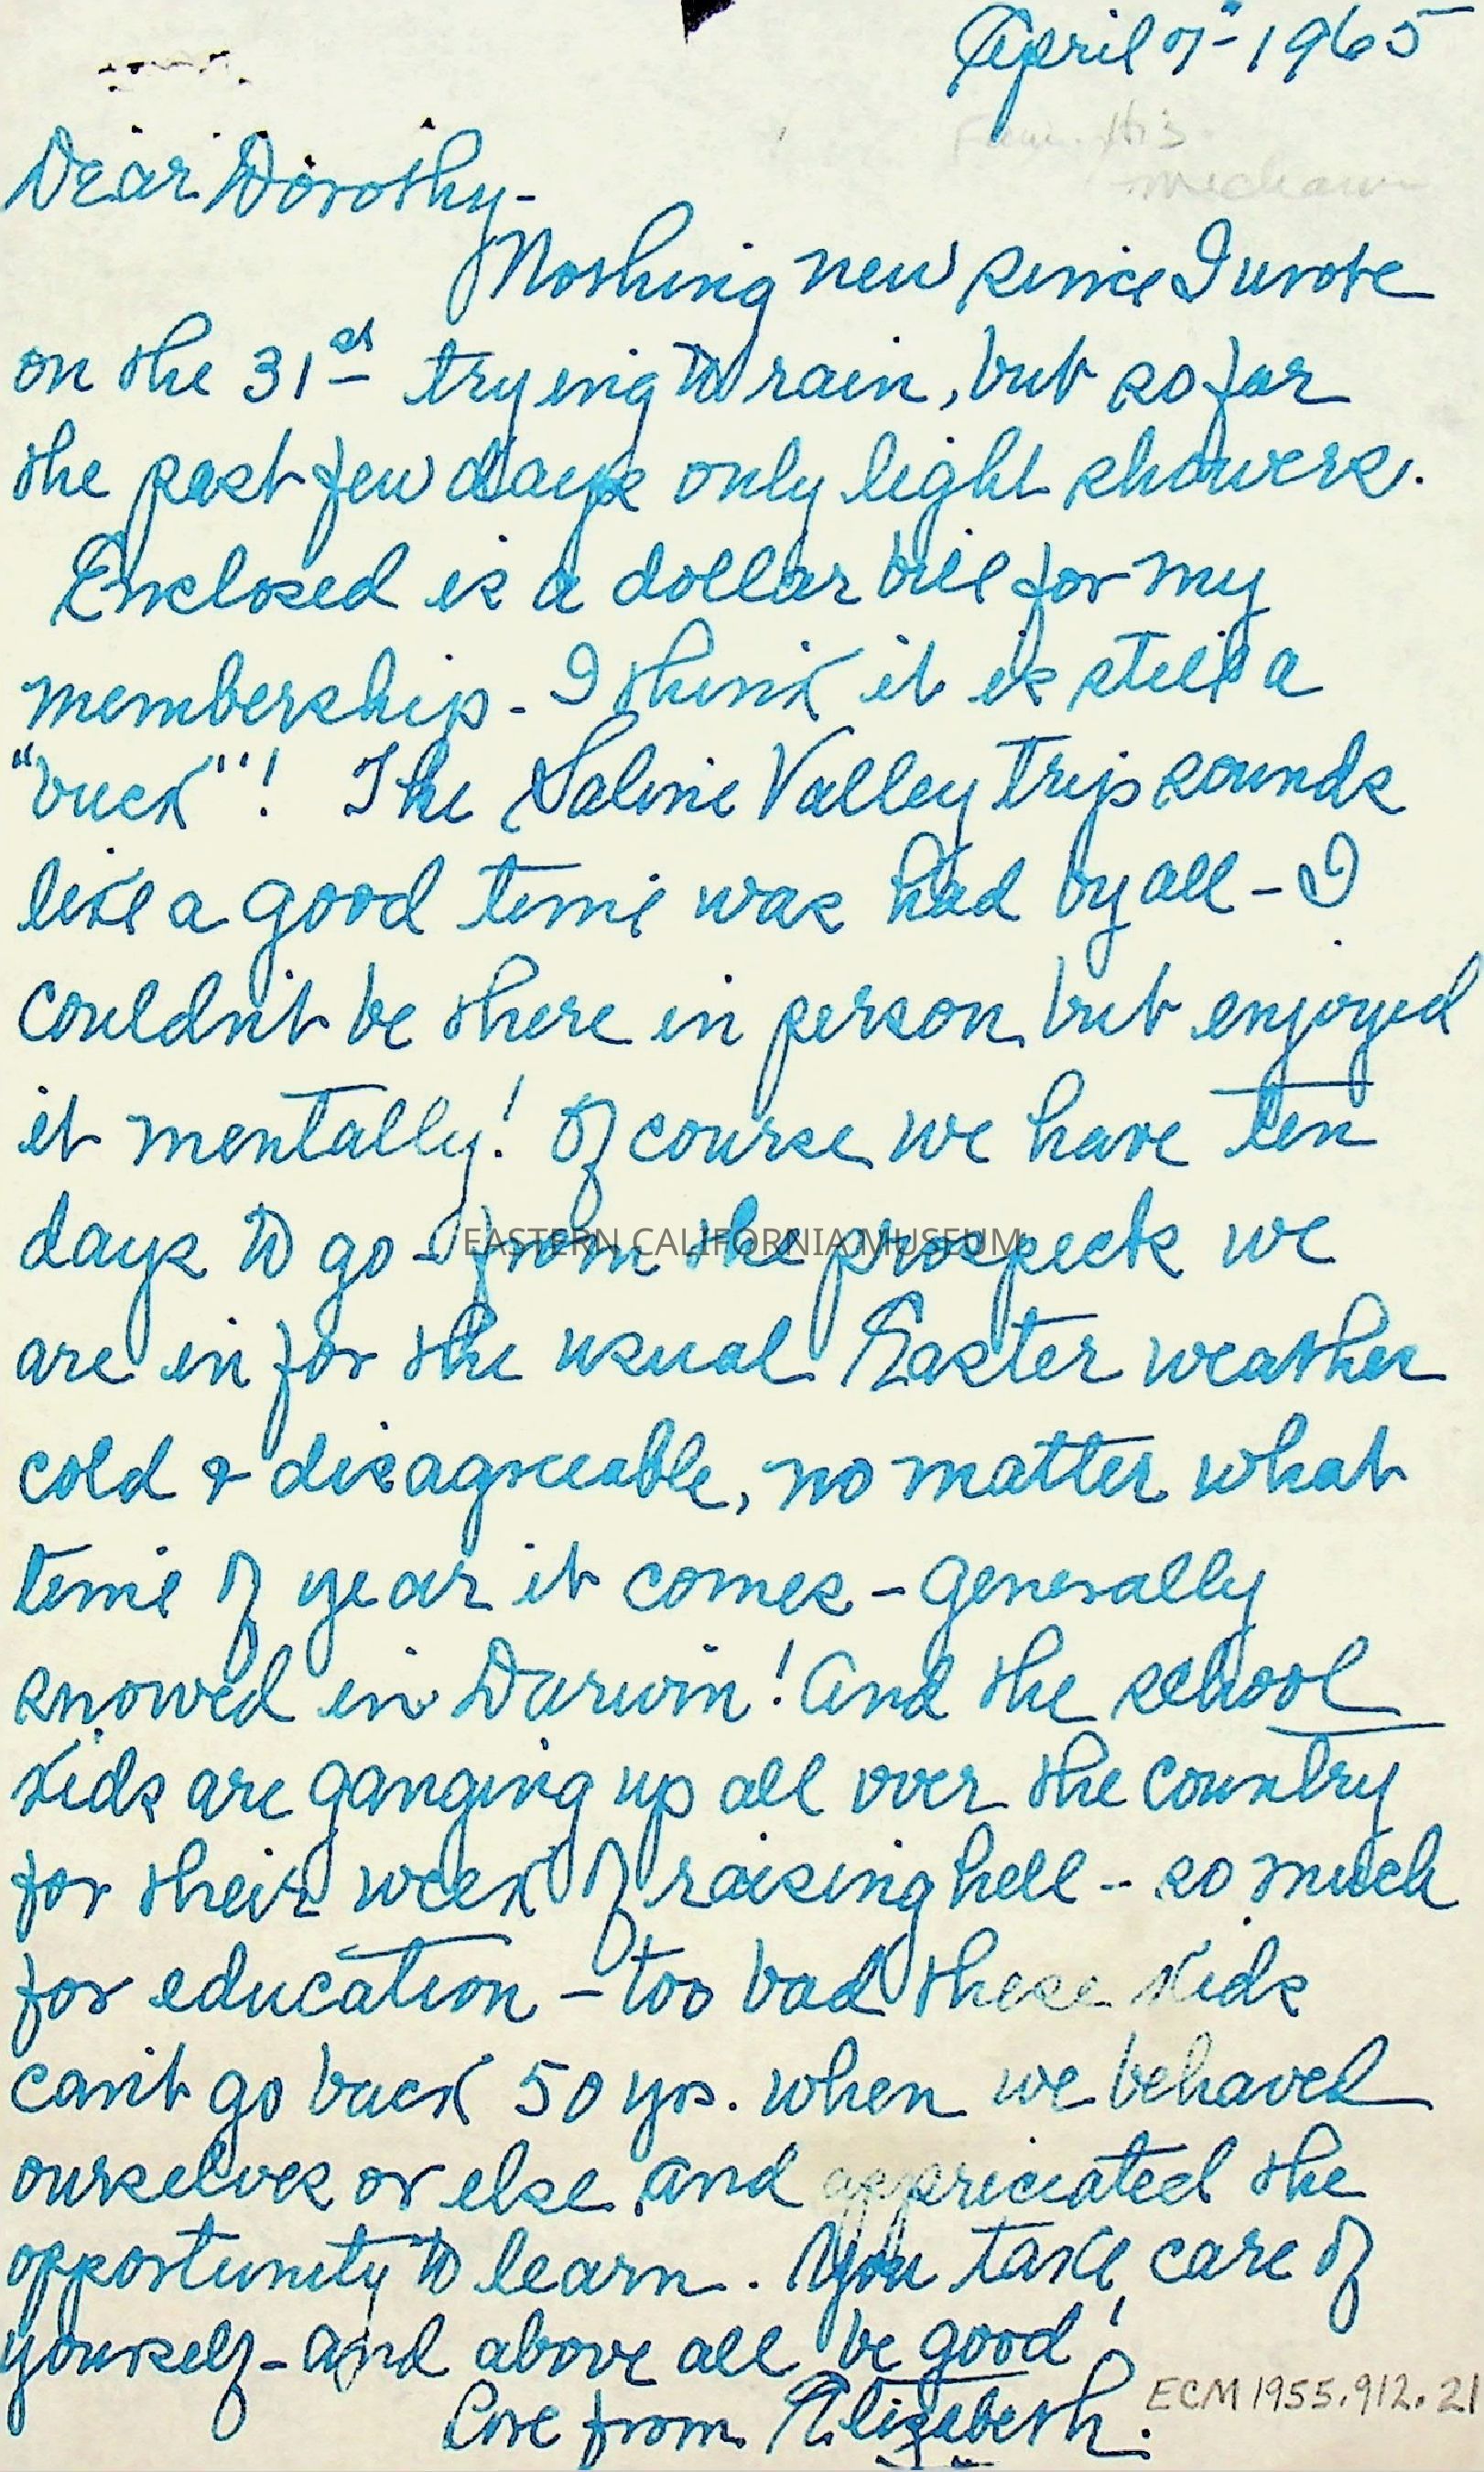 April 7 - 1965
Fam. His
Dear Dorothy -
Nothing new since I wrote
on the 31st trying to rain, but so far
the past few days only light showers.
Enclosed is a dollar bill for my
membership - I think it is still a
"buck"! The Saline Valley trip sounds
like a good time was had by all - I
couldn't be there in person, but enjoyed
it mentally! Of course we have ten
days to go - from the prospects we
EASTERN CALIFORNIA MUSEUM
are in for the usual Easter weather
cold & disagreeable, no matter what
time of year it comes - generally
snowed in Darwin! And the school
kids are ganging up all over the country
for their week of raising hell - so much
for education - too bad these kids
can't go back 50 yrs. when we behaved
ourselves or else and appreciated the
opportunity to learn. You take care of
yourself - and above all be good!
Love from Elizabeth.
ECM 1955.912.21